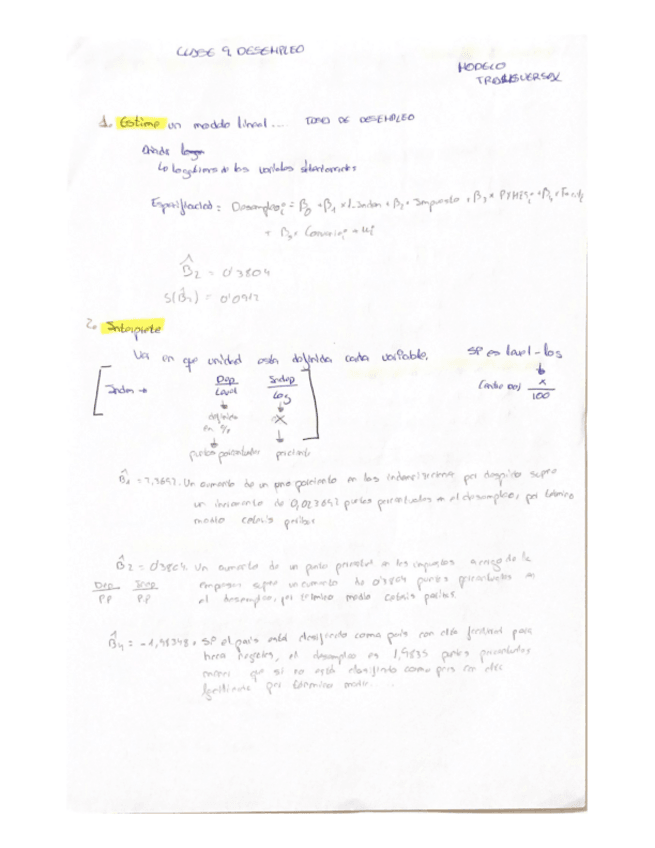 CLASE 9 DESEMPLEO
MODELO
TRANSVERSAL
1. Estime un modelo lineal... TEMA DE DESEMPLEO
Lo logaritmos de las variables
Especificación: Desempleo i = β0 + β1 × l_Indem + β2 × Impuesto + β3 × PYMES i + β4 ×
+ β5 × i + ui
β̂2 = 0'3804
S(β̂1) = 0'0912
2. Interprete
Va en que unidad está definida cada variable. SP es level-log
Indem → Dep Indep
Level Log
(entre 100) x/100
en %
puntos porcentuales
β̂1 = Un aumento de un por las indemnizaciones por despido supone
un incremento de 0,023697 puntos porcentuales en el desempleo, por término
medio ceteris paribus
β̂2 = 0'3804. Un aumento de un punto porcentual en los impuestos a cargo de la
Dep Indep empresas supone un aumento de 0'3804 puntos porcentuales en
P.P P.P el desempleo, por término medio ceteris paribus
β̂4 = -1,98348. Si el país está clasificado como país con alta facilidad para
hacer negocios, el desempleo es 1,9835 puntos porcentuales
menor que si no está clasificado como país con alta
por término medio...